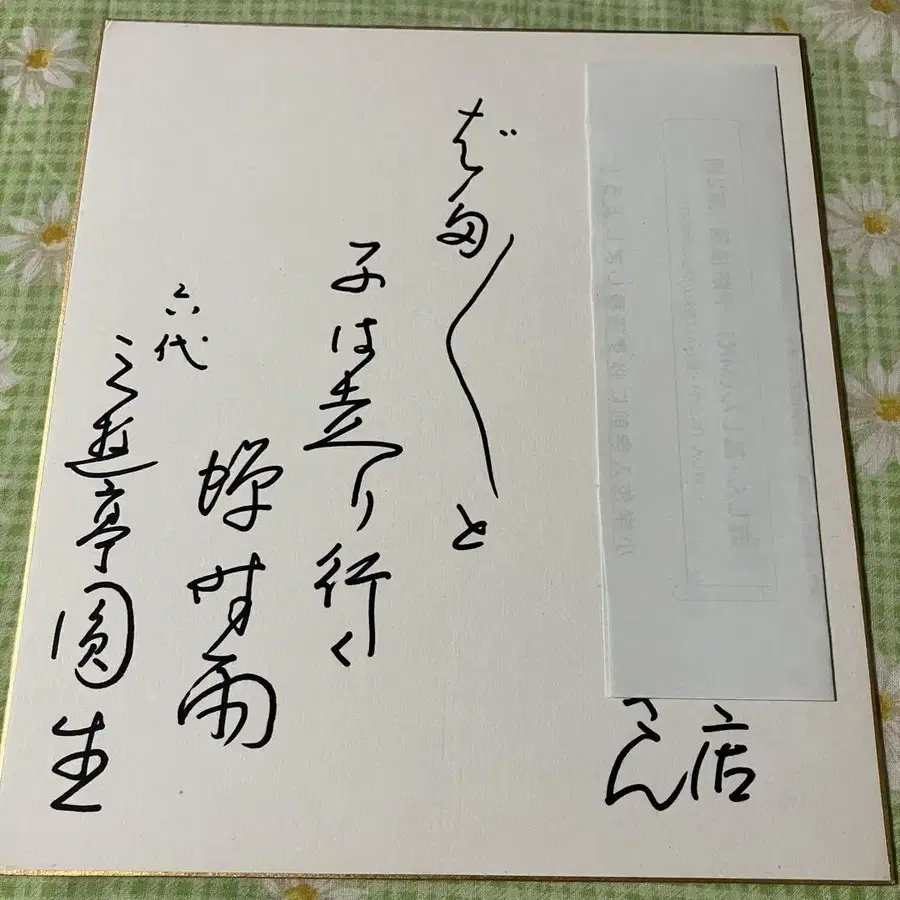 店
さん
ばた〱と
子は走り行く
蝉時雨
六代
三遊亭圓生